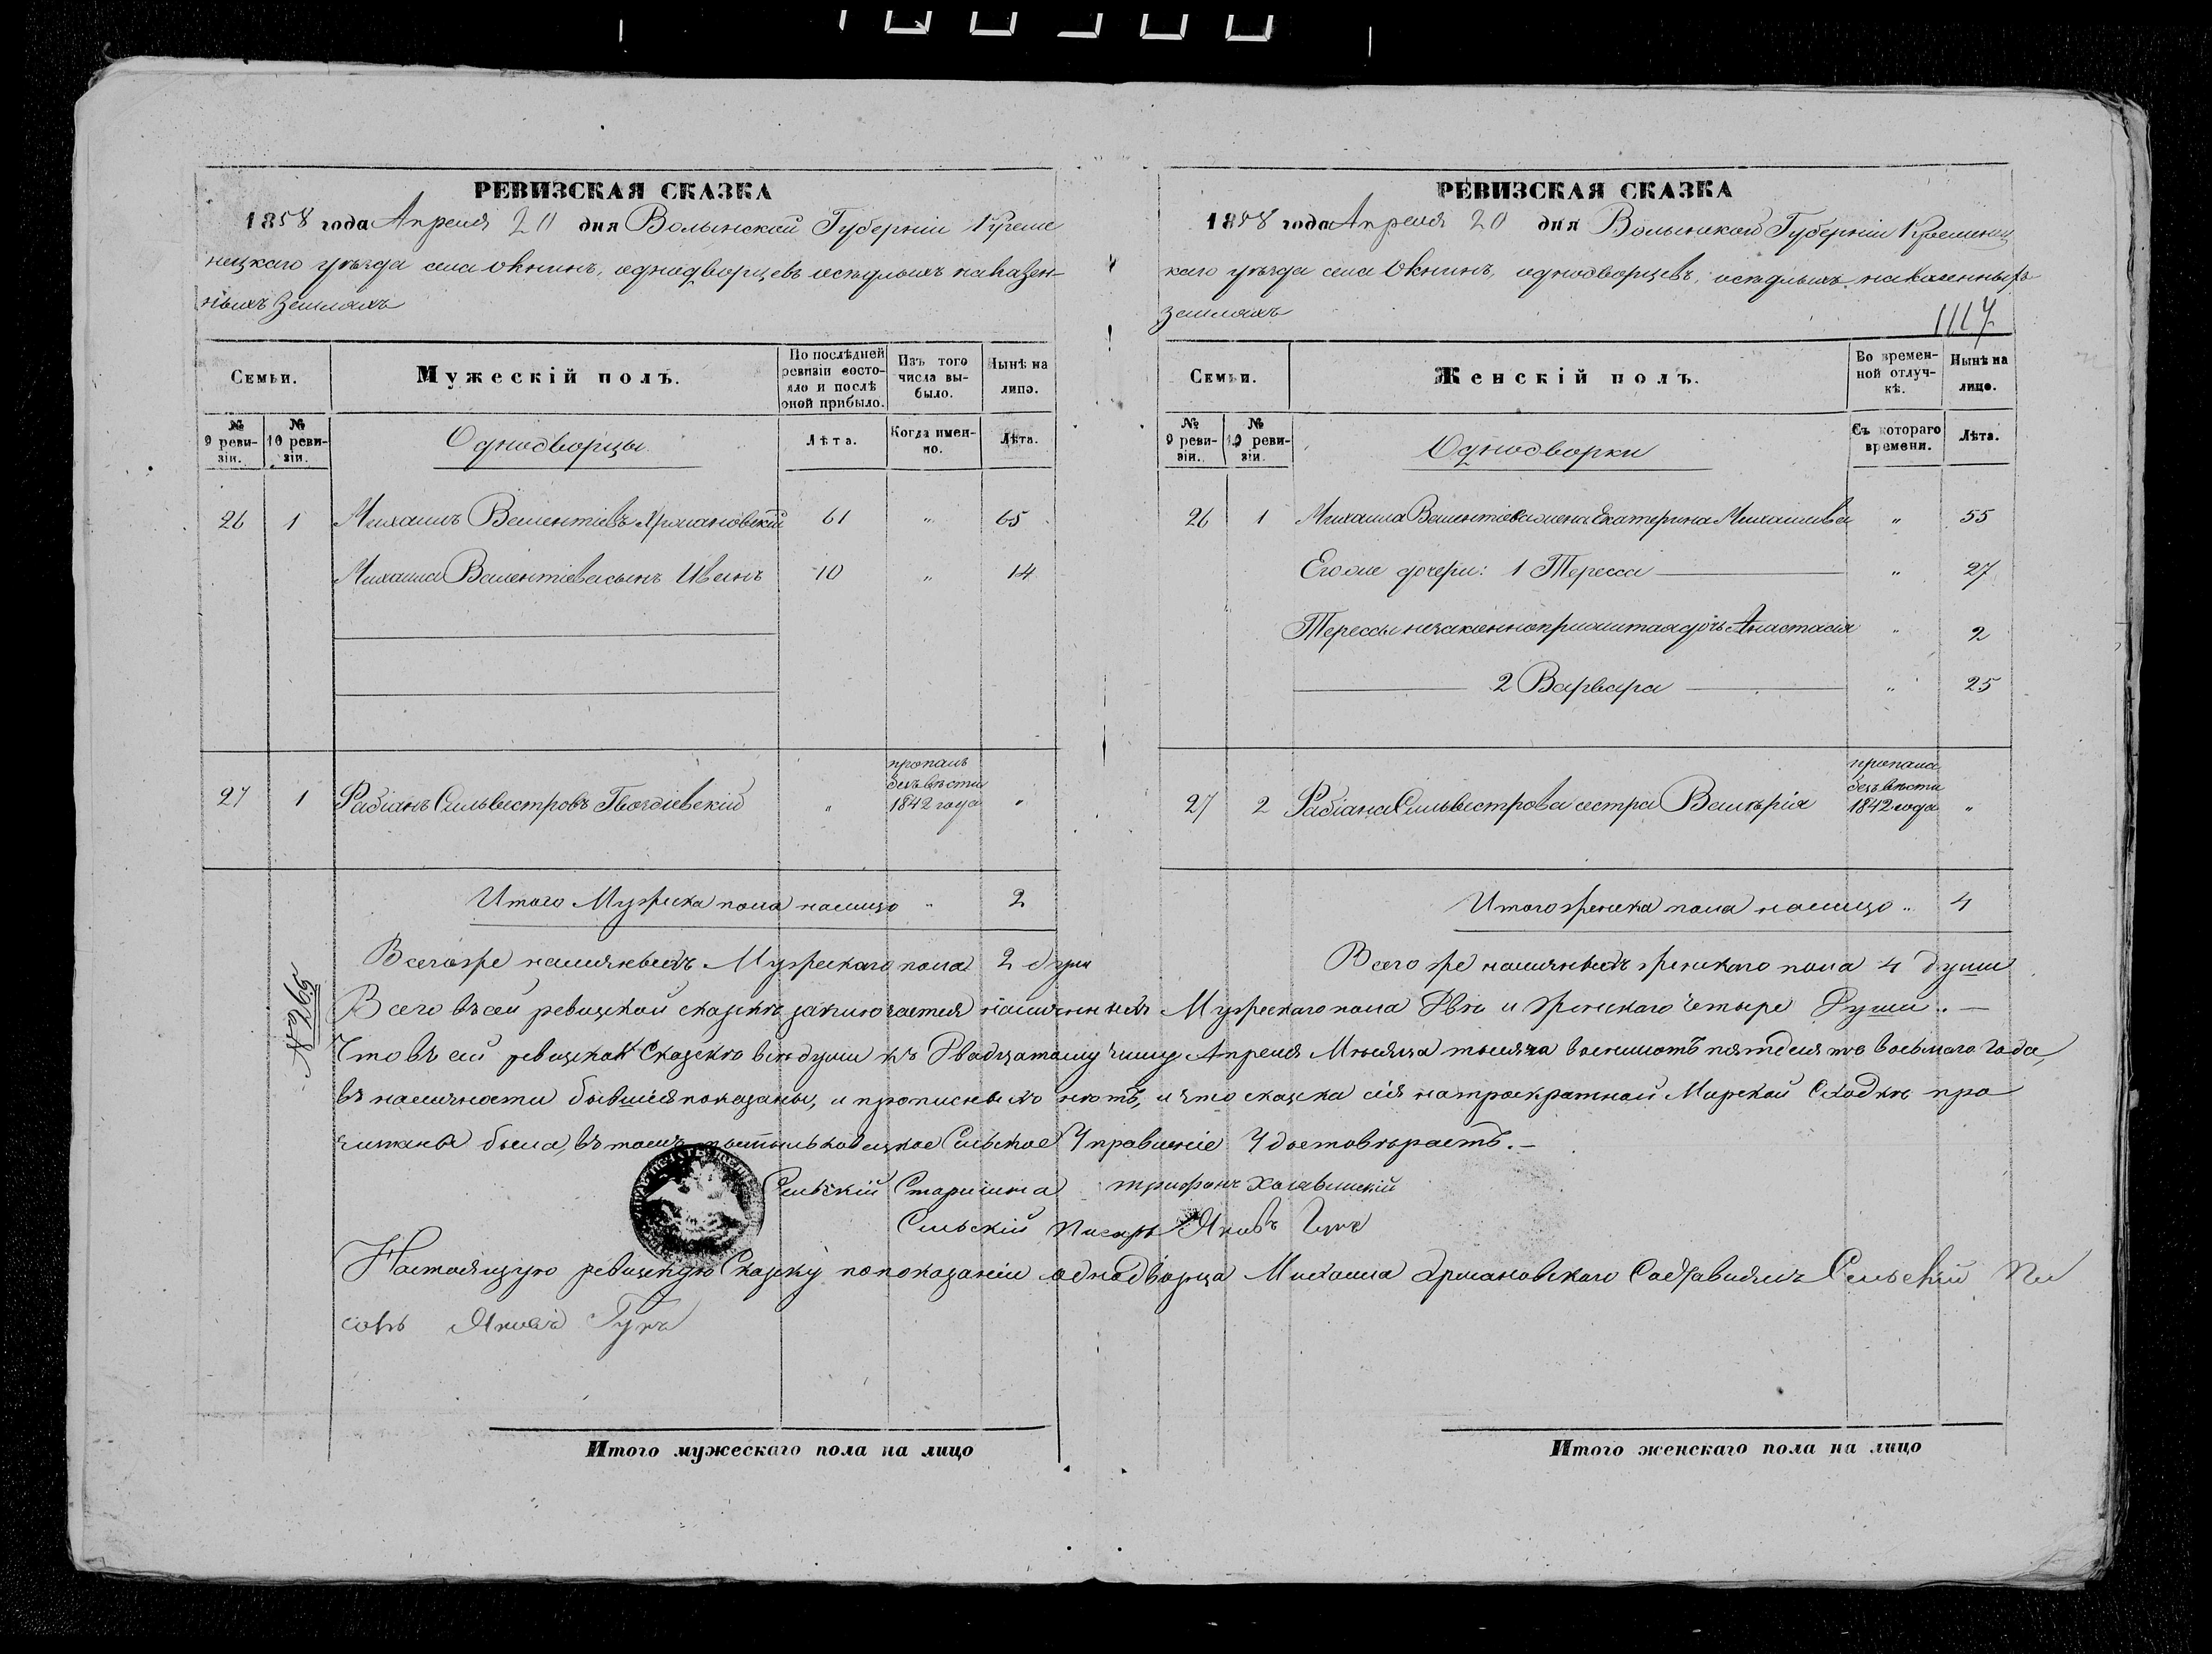 РЕВИЗСКАЯ СКАЗКА
1858 года Апреля 20 дня Волынской Губерніи Креме
нецкаго уѣзда села Окнинъ, однодворцевъ осѣдлыхъ на казен-
ныхъ земляхъ
Семьи.
Мужескій полъ.
По послѣдней ревизіи состо-яло и послѣ оной прибыло.
Изъ того числа вы-было.
Нынѣ на лицо.
№ 9 реви-зіи.
№ 10 реви-зіи.
Однодворцы
Лѣта.
Когда имен-но.
Лѣта.
26 1 Михаилъ Валентіевъ Хрмановскій 61 " 65
Михаила Валентіева сынъ Иванъ 10 " 14
27 1 Фабіанъ Сильвестровъ Гвоздіевскій " пропалъ безъ вѣсти 1842 года "
Итого Мужска пола налицо " 2
Всего же наличныхъ Мужескаго пола 2 души
РЕВИЗСКАЯ СКАЗКА
1858 года Апреля 20 дня Волынской Губерніи Кременец
каго уѣзда села Окнинъ, однодворцевъ, осѣдлыхъ на казенныхъ
земляхъ
1117
Семьи.
Женскій полъ.
Во времен-ной отлуч-кѣ.
Нынѣ на лицо.
№ 9 реви-зіи.
№ 10 реви-зіи.
Однодворки
Съ котораго времени.
Лѣта.
26 1 Михаила Валентіева жена Екатерина Михайлова " 55
Его же дочери: 1 Тересса " 27
Терессы незаконноприжитая дочь Анастасія " 2
2 Варвара " 25
27 2 Фабіана Сильвестрова сестра Валѣрія пропала безъ вѣсти 1842 года "
Итого женска пола налицо " 4
Всего же наличныхъ женскаго пола 4 души
№ 265
Всего въ сей ревизской сказкѣ заключается наличныхъ Мужескаго пола Двѣ и Женскаго четыре Души. —
Что въ сей ревизской Сказкѣ всѣ души къ Двадцатому числу Апреля Мѣсяца тысяча восемьсотъ пятдесятъ восьмаго Года,
въ наличности бывшія показаны, и прописныхъ нѣтъ, и что сказка сія на троекратной Мирской Сходкѣ про
читана была, въ томъ Сельское Управленіе Удостовѣряетъ. —
Сельскій Старшина Трифонъ
Сельскій Писарь Яковъ Гукъ
Настоящую ревизскую Сказку по показанію однодворца Михаила Хрмановскаго Составилъ Сельскій Пи
сарь Яковъ Гукъ
Итого мужескаго пола на лицо
Итого женскаго пола на лицо